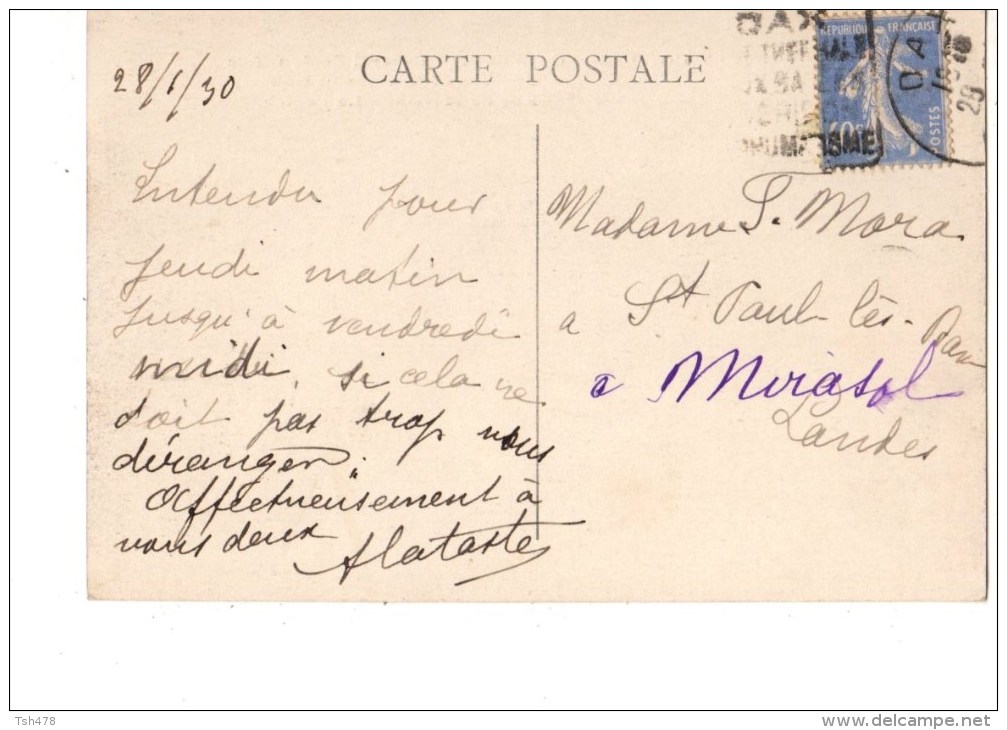 28/1/30
CARTE POSTALE
DAX
RHUMATISME
REPUBLIQUE FRANÇAISE
POSTES
40c
DA
Entendu pour
jeudi matin
jusqu'à vendredi
midi, si cela ne
doit pas trop vous
déranger.
Affectueusement à
vous deux
Alataste
Madame T. Mora
a St Paul-lès-Dax
a Mirasol
Landes
Tsh478
www.delcampe.net